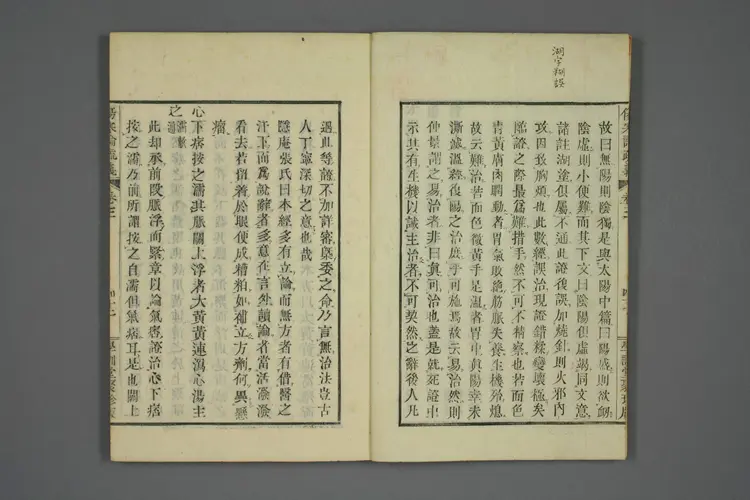 湖字糊誤
故曰無陽則陰獨是與太陽中篇曰陽盛則欲衄
陰虛則小便難而其下文曰陰陽俱虛竭同文意
諸註湖塗俱屬不通此證後誤加燒針則火邪內
攻因致胸煩也此數經誤治現證錯糅變壞極矣
臨證之際最爲難措手然不可不精察也若面色
青黃膚肉瞤動者胃氣敗絶筋脈失養生機殆熄
故云難治若面色微黃手足溫者胃中真陽幸未
澌滅溫經復陽之治庶乎可施焉故云易治然則
仲景謂之易治者非曰真可治也盖是就死證中
示其有生機以誡主治者不可契然之辭後人凡
遇此等證不加詳審槩委之命乃言無治法豈古
人丁寧深切之意也哉
隱庵張氏曰本經多有立論而無方者有借醫之
汗下而爲說辭者多意在言外讀論者當活潑潑
看去若留着於眼便成糟粕如補立方劑何異懸
瘤
心下痞按之濡其脈關上浮者大黃黃連瀉心湯主
之
此却承前段脈浮而緊章以論氣痞證治心下痞
按之濡乃前所謂按之自濡但氣痞耳是也關上
傷寒論疏義
卷三